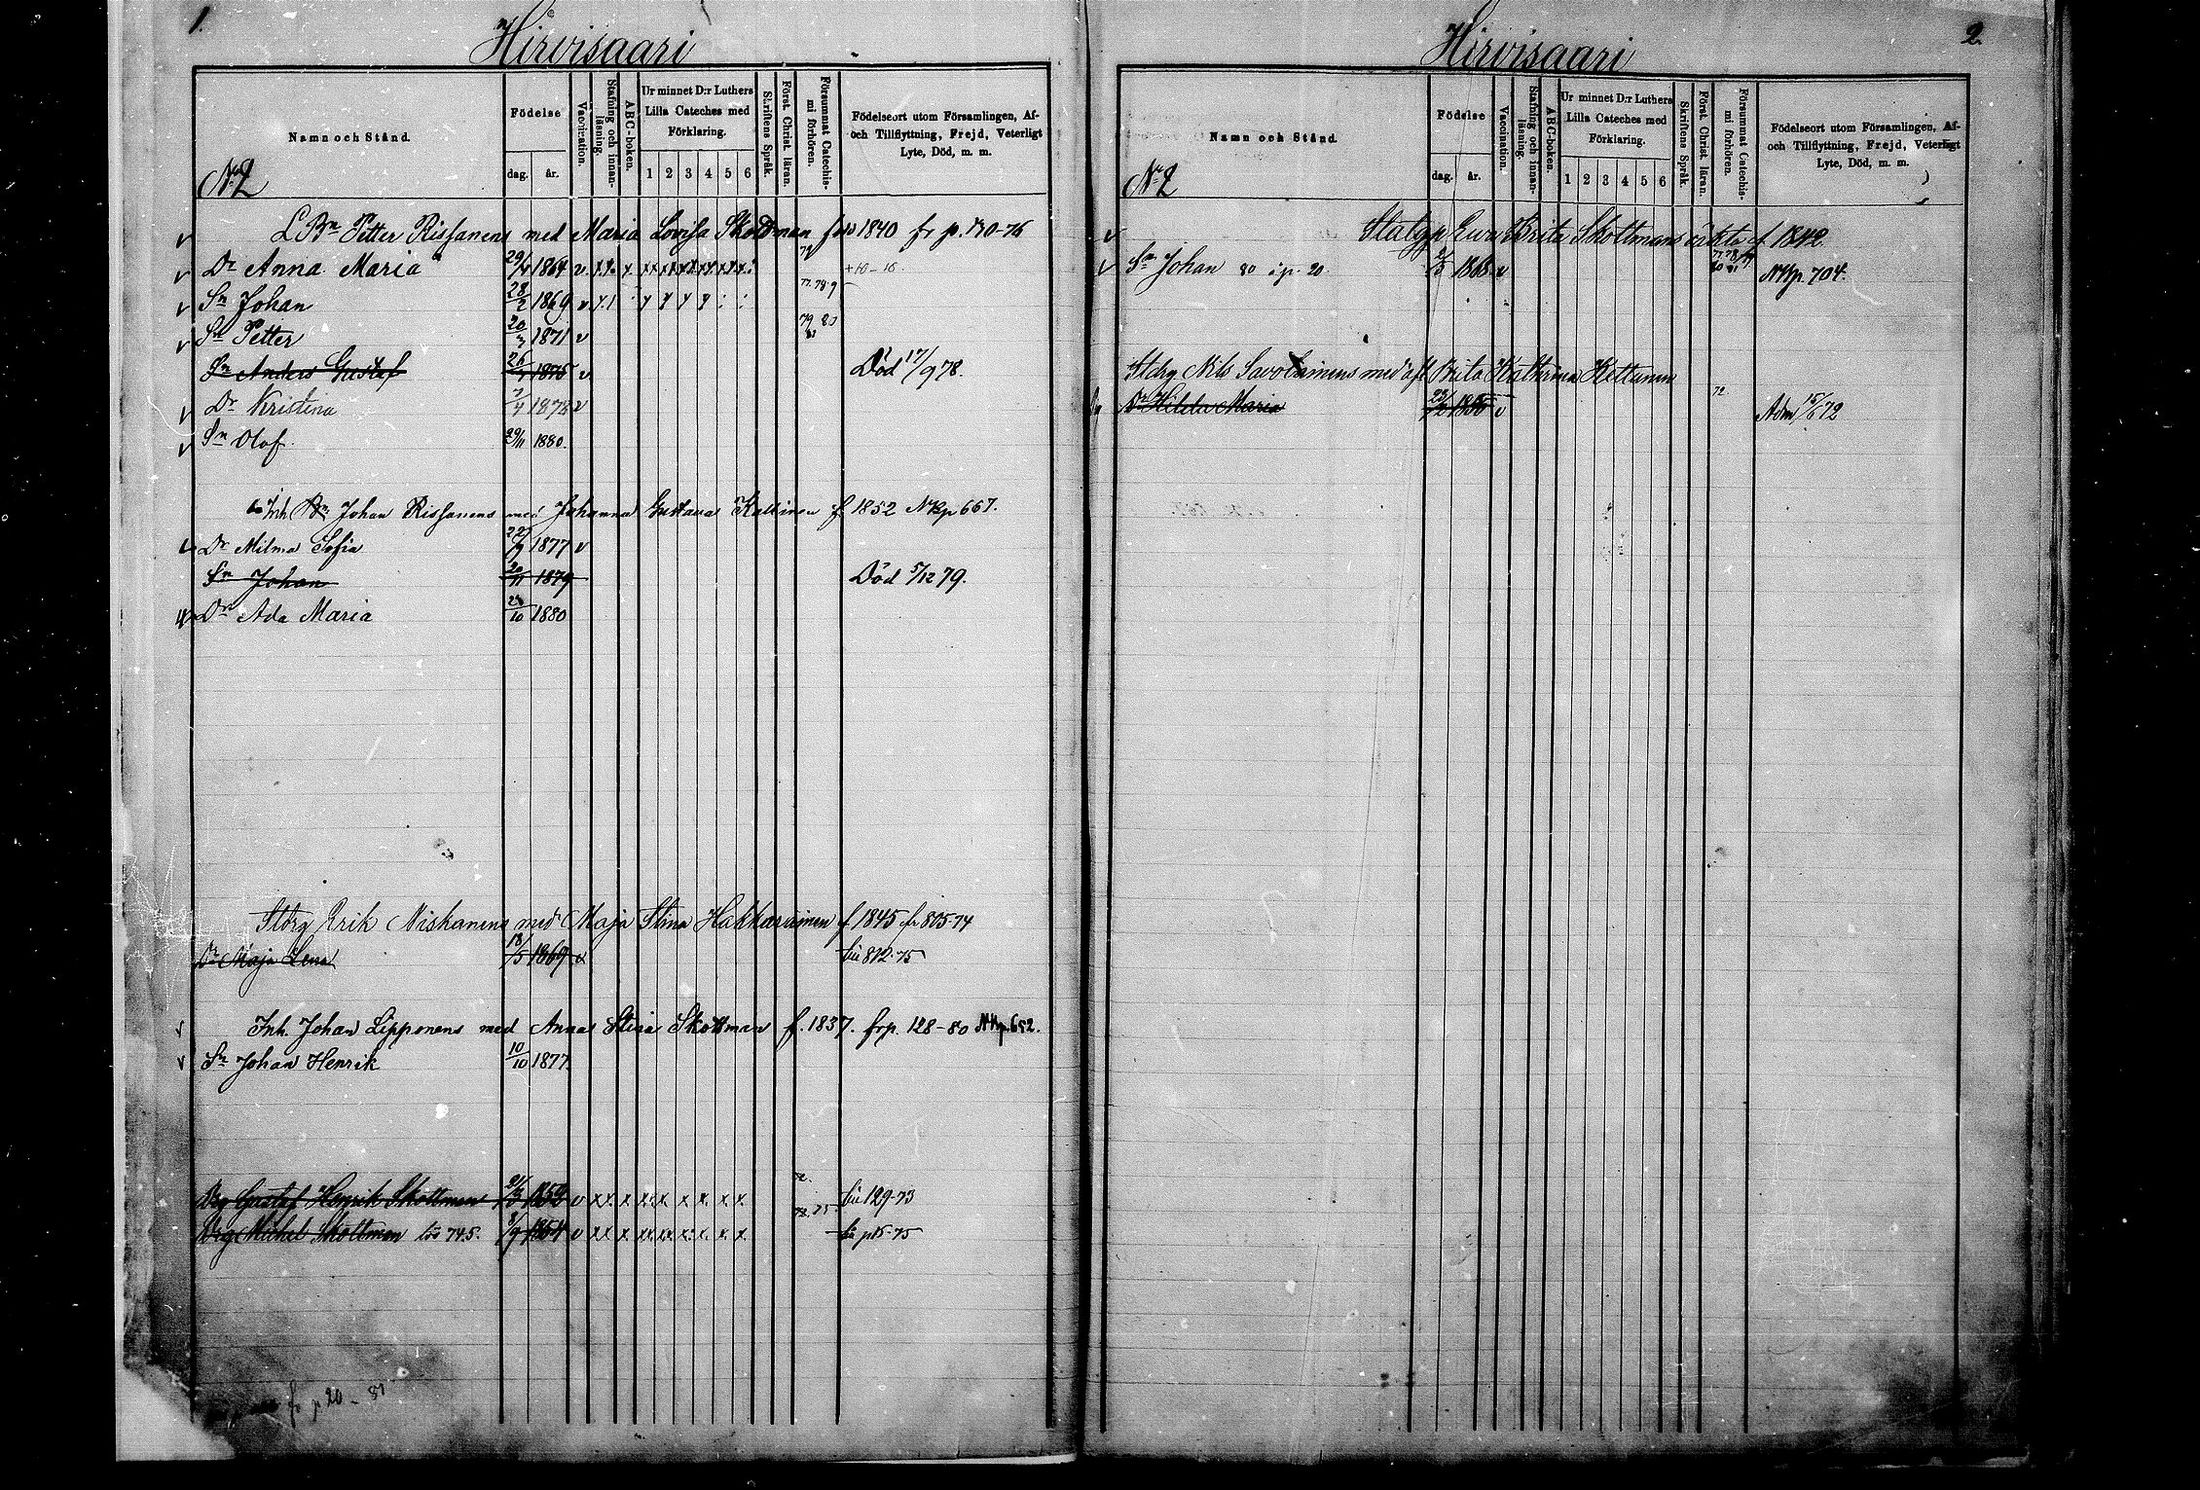 1.
Hirvisaari
Namn och Stånd.
Födelse
dag. år.
Vaccination.
Stafning och innan-
läsning.
ABC-boken.
Ur minnet D:r Luthers
Lilla Cateches med
Förklaring.
1 2 3 4 5 6
Skriftens Språk.
Först. Christ. läran.
Försummat Catechis-
mi förhören.
Födelseort utom Församlingen, Af-
och Tillflyttning, Frejd, Veterligt
Lyte, Död, m. m.
N:2
Petter Rissanens med Maria Lovisa Skottman 1840 fr p. 170-76
Dr Anna Maria 29/4 1864 v
Sn Johan 28/2 1869 v
77. 78. 9
Sn Petter 20/7 1871 v
79 80
Sn Anders Gustaf 1875 v Död 17/9 78.
Dr Kristina 7/4 1878 v
Sn Olof. 29/11 1880.
Inh. Johan Rissanens med Johanna Gustava f 1852 NKp 667.
Dr Milma Sofia 1877 v
Sn Johan 20/11 1879 Död 5/12 79.
Dr Ada Maria 10 1880
Erik Niskanens med Maja Stina Hakkarainen f 1845 fr 805-74
Dr Maja Lena 18/5 1869 v 812-75
Inh. Johan Lipponens med Anna Stina Skottman f. 1837. frp. 128-80 NKp. 652.
Sn Johan Henrik 10/10 1877.
Drg Gustaf Henrik Skottman v xx x x x x x x x 129-73
Drg Michel Skottman 745. 8/9 1854 v xx x xx xx x x x x p 15-75
fr p 20 - 81
2.
Hirvisaari
Namn och Stånd.
Födelse
dag. år.
Vaccination.
Stafning och innan-
läsning.
ABC-boken.
Ur minnet D:r Luthers
Lilla Cateches med
Förklaring.
1 2 3 4 5 6
Skriftens Språk.
Först. Christ. läran.
Försummat Catechis-
mi förhören.
Födelseort utom Församlingen, Af-
och Tillflyttning, Frejd, Veterligt
Lyte, Död, m. m.
N:2
Eva Brita Skottmans f. 1842.
Sn Johan 80 i p. 20. 1868 v NKp. 704.
Nils Savolainens med Brita Kathrina Kettunen
Dr Hilda Maria v 72. Adm 15/6 72